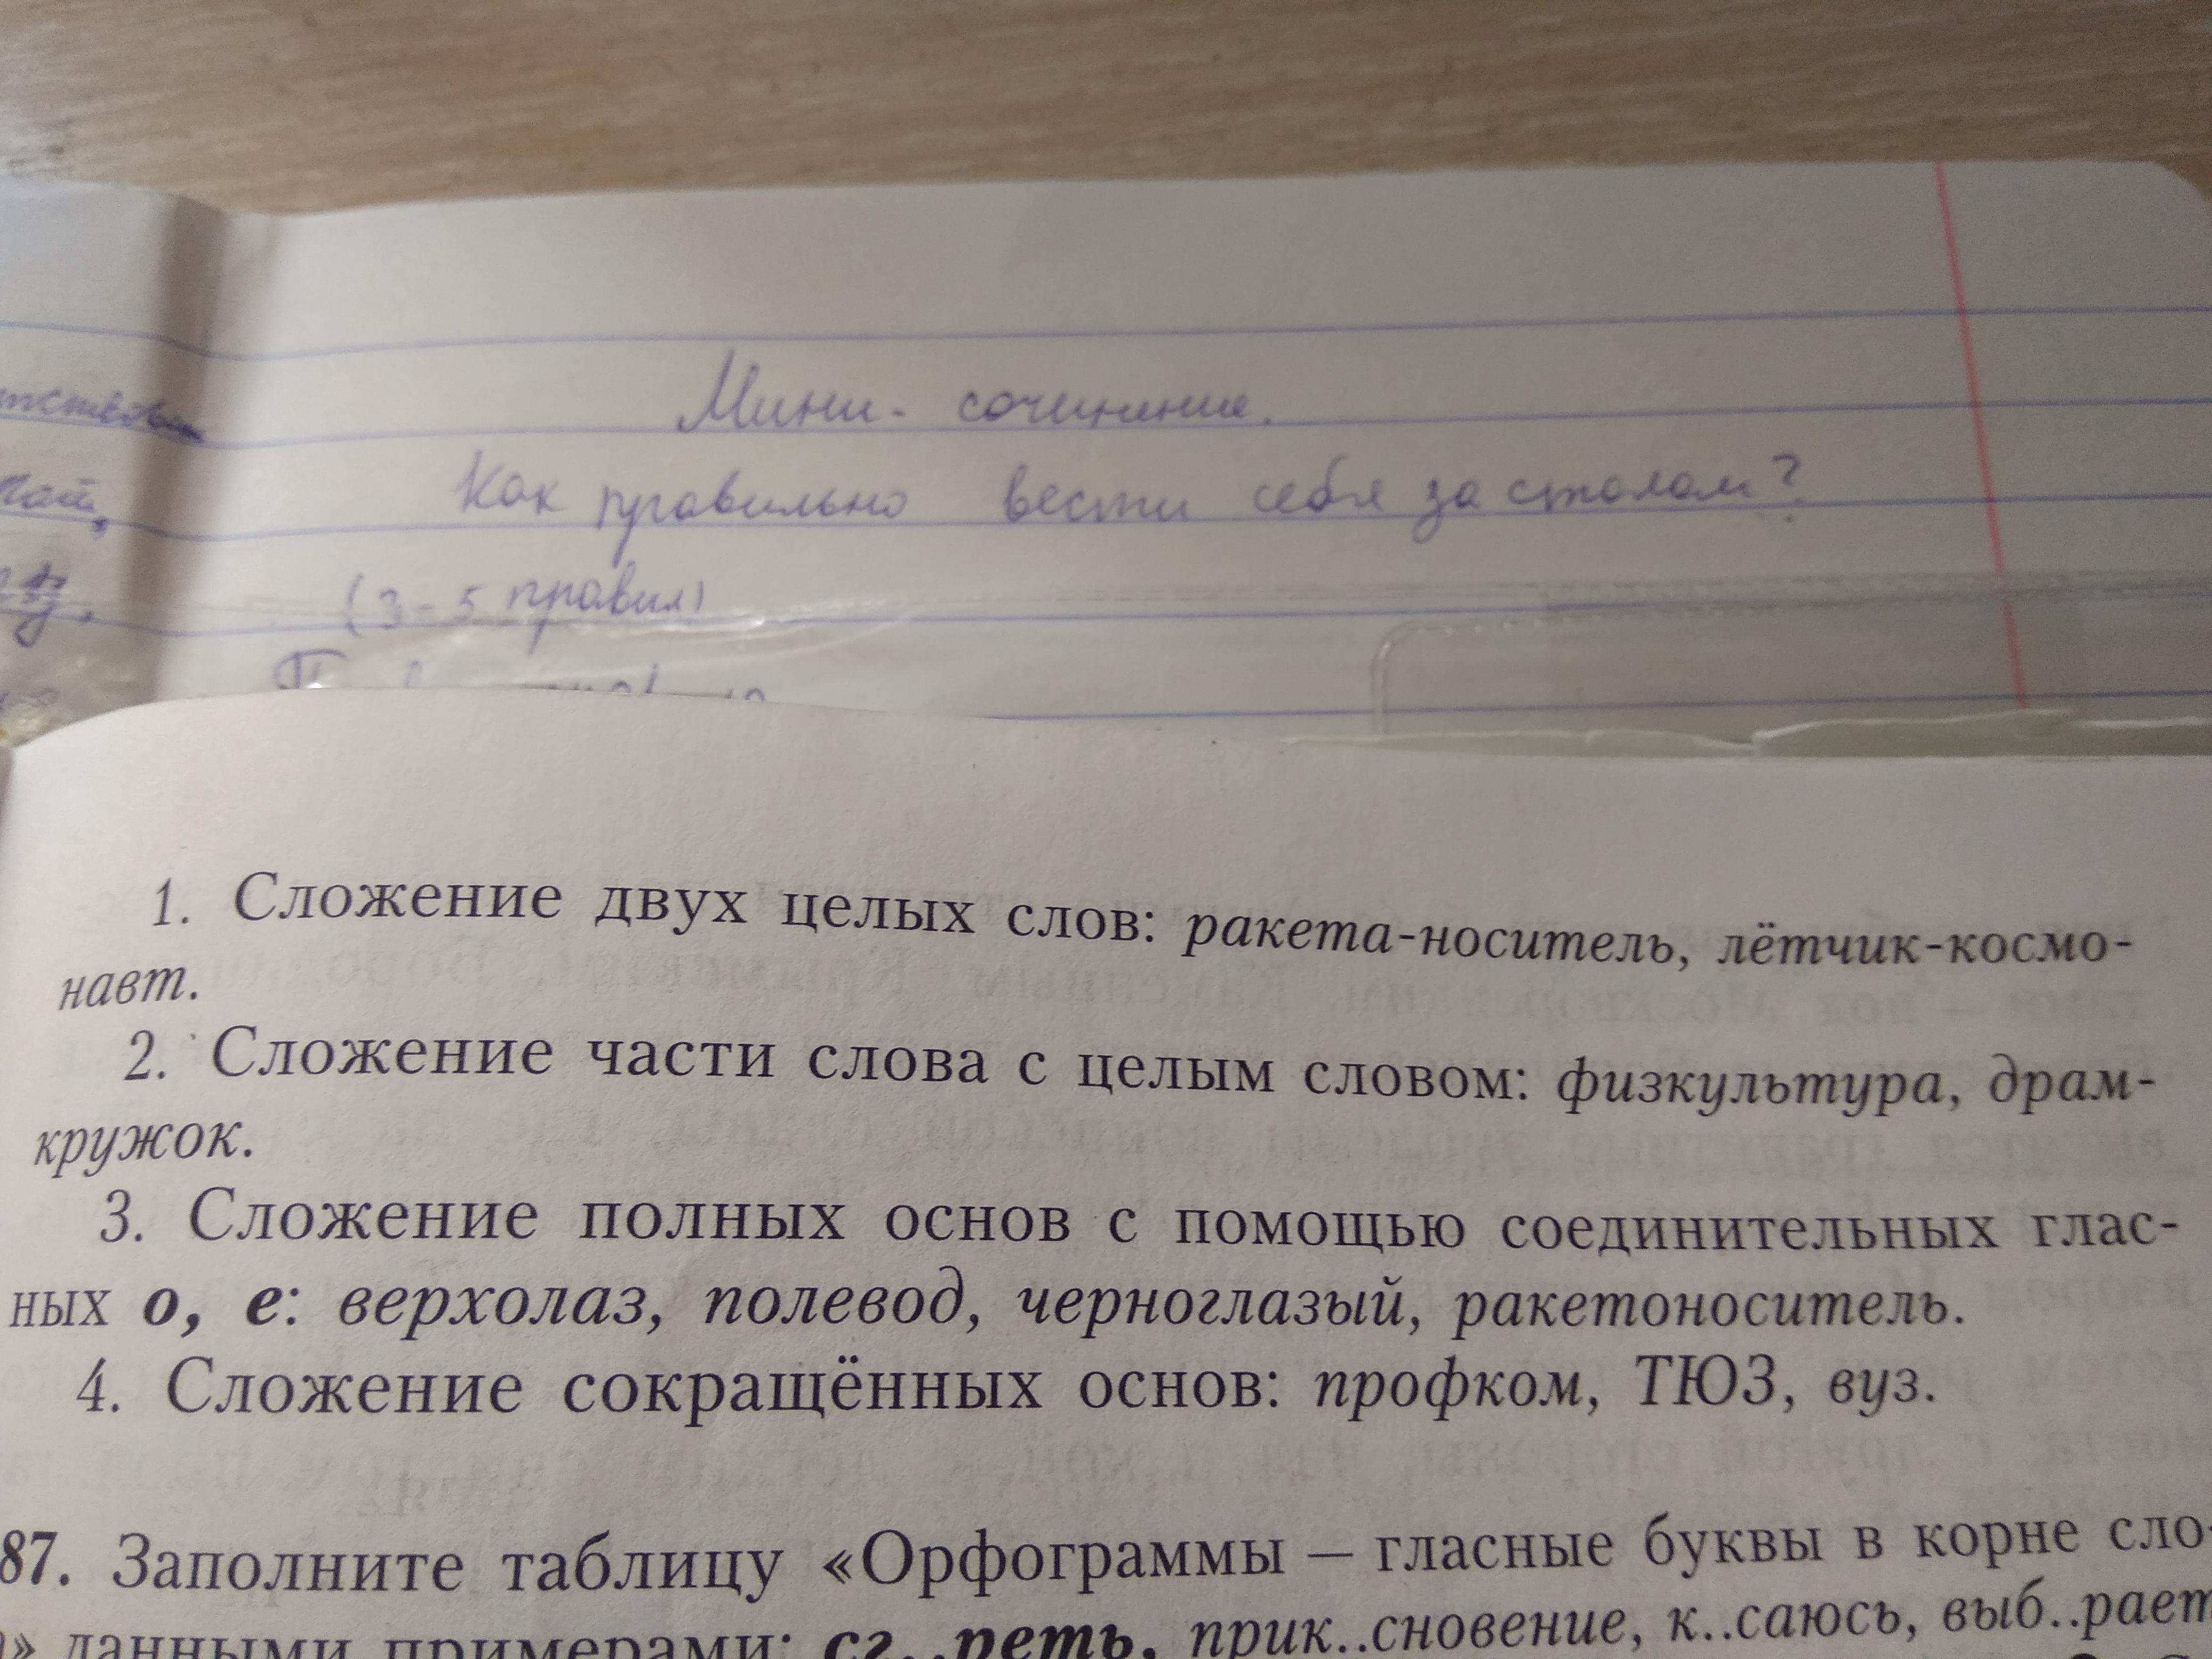 Мини- сочинение.
Как правильно вести себя за столом?
(3-5 правил)
1. Сложение двух целых слов: ракета-носитель, лётчик-космо-
навт.
2. Сложение части слова с целым словом: физкультура, драм-
кружок.
3. Сложение полных основ с помощью соединительных глас-
ных о, е: верхолаз, полевод, черноглазый, ракетоноситель.
4. Сложение сокращённых основ: профком, ТЮЗ, вуз.
87. Заполните таблицу «Орфограммы — гласные буквы в корне сло-
данными примерами: сг..реть, прик..сновение, к..саюсь, выб..рает